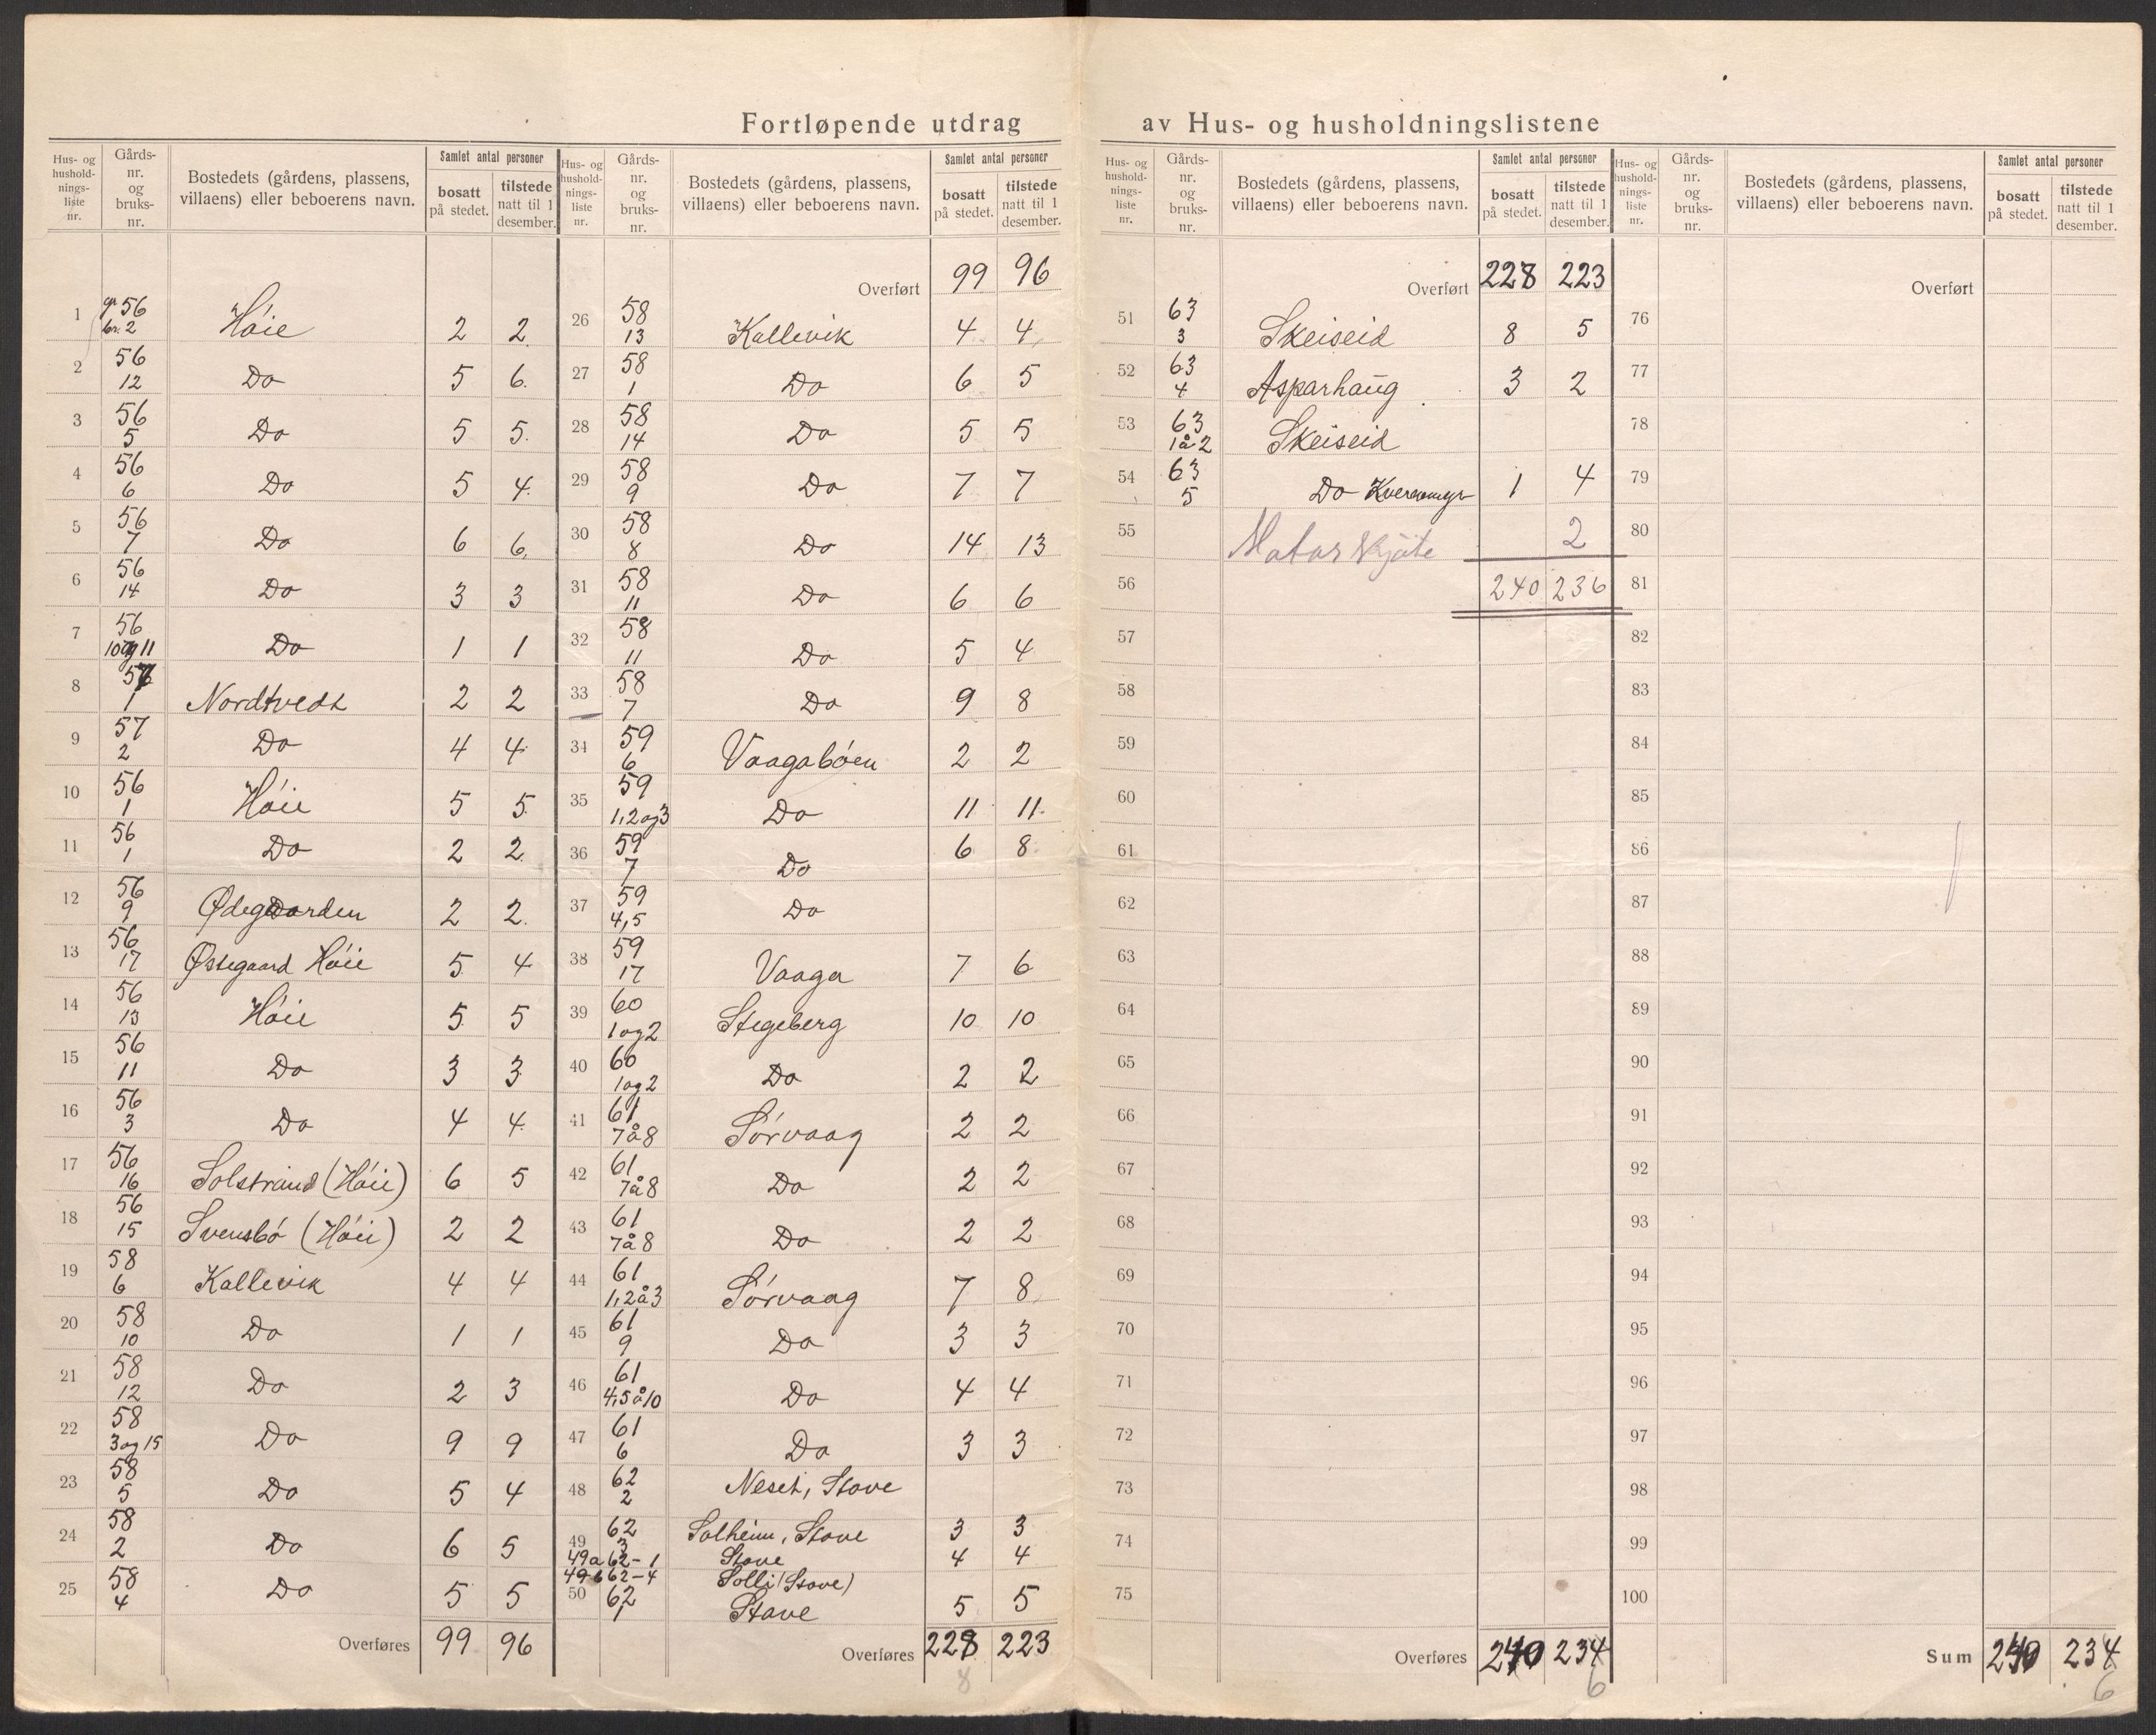 Fortløpende utdrag av Hus- og husholdningslistene
Hus- og hushold-nings-liste nr. | Gårds-nr. og bruks-nr. | Bostedets (gårdens, plassens, villaens) eller beboerens navn. | Samlet antal personer | bosatt på stedet. | tilstede natt til 1 desember.
1 | gr 56 br. 2 | Höie | 2 | 2
2 | 56 12 | Do | 5 | 6
3 | 56 5 | Do | 5 | 5
4 | 56 6 | Do | 5 | 4
5 | 56 7 | Do | 6 | 6
6 | 56 14 | Do | 3 | 3
7 | 56 10 og 11 | Do | 1 | 1
8 | 57 1 | Nordtvedt | 2 | 2
9 | 57 2 | Do | 4 | 4
10 | 56 1 | Höie | 5 | 5
11 | 56 1 | Do | 2 | 2
12 | 56 9 | Ødegaarden | 2 | 2
13 | 56 17 | Østegaard Höie | 5 | 4
14 | 56 13 | Höie | 5 | 5
15 | 56 11 | Do | 3 | 3
16 | 56 3 | Do | 4 | 4
17 | 56 16 | Solstrand (Höie) | 6 | 5
18 | 56 15 | Svensbö (Höie) | 2 | 2
19 | 58 6 | Kallevik | 4 | 4
20 | 58 10 | Do | 1 | 1
21 | 58 12 | Do | 2 | 3
22 | 58 3 og 15 | Do | 9 | 9
23 | 58 5 | Do | 5 | 4
24 | 58 2 | Do | 6 | 5
25 | 58 4 | Do | 5 | 5
Overføres | 99 | 96
Hus- og hushold-nings-liste nr. | Gårds-nr. og bruks-nr. | Bostedets (gårdens, plassens, villaens) eller beboerens navn. | Samlet antal personer | bosatt på stedet. | tilstede natt til 1 desember.
Overført | 99 | 96
26 | 58 13 | Kallevik | 4 | 4
27 | 58 1 | Do | 6 | 5
28 | 58 14 | Do | 5 | 5
29 | 58 9 | Do | 7 | 7
30 | 58 8 | Do | 14 | 13
31 | 58 11 | Do | 6 | 6
32 | 58 11 | Do | 5 | 4
33 | 58 7 | Do | 9 | 8
34 | 59 6 | Vaagaböen | 2 | 2
35 | 59 1,2 og 3 | Do | 11 | 11
36 | 59 7 | Do | 6 | 8
37 | 59 4,5 | Do
38 | 59 17 | Vaaga | 7 | 6
39 | 60 1 og 2 | Stegeberg | 10 | 10
40 | 60 1 og 2 | Do | 2 | 2
41 | 61 7 å 8 | Sörvaag | 2 | 2
42 | 61 7 å 8 | Do | 2 | 2
43 | 61 7 å 8 | Do | 2 | 2
44 | 61 1,2 å 3 | Sörvaag | 7 | 8
45 | 61 9 | Do | 3 | 3
46 | 61 4,5 å 10 | Do | 4 | 4
47 | 61 6 | Do | 3 | 3
48 | 62 2 | Neset, Stove
49 | 62 3 | Solheim, Stove | 3 | 3
49a | 62-1 | Stove | 4 | 4
49b | 62-4 | Solli (Stove)
50 | 62 1 | Stove | 5 | 5
Overføres | 228 | 223
8
Hus- og hushold-nings-liste nr. | Gårds-nr. og bruks-nr. | Bostedets (gårdens, plassens, villaens) eller beboerens navn. | Samlet antal personer | bosatt på stedet. | tilstede natt til 1 desember.
Overført | 228 | 223
51 | 63 3 | Skeiseid | 8 | 5
52 | 63 4 | Asparhaug | 3 | 2
53 | 63 1 å 2 | Skeiseid
54 | 63 5 | Do | 1 | 4
55 | 2
56 | 240 | 236
57
58
59
60
61
62
63
64
65
66
67
68
69
70
71
72
73
74
75
Overføres | 240 | 234
6
Hus- og hushold-nings-liste nr. | Gårds-nr. og bruks-nr. | Bostedets (gårdens, plassens, villaens) eller beboerens navn. | Samlet antal personer | bosatt på stedet. | tilstede natt til 1 desember.
Overført
76
77
78
79
80
81
82
83
84
85
86
87
88
89
90
91
92
93
94
95
96
97
98
99
100
Sum | 240 | 234
6